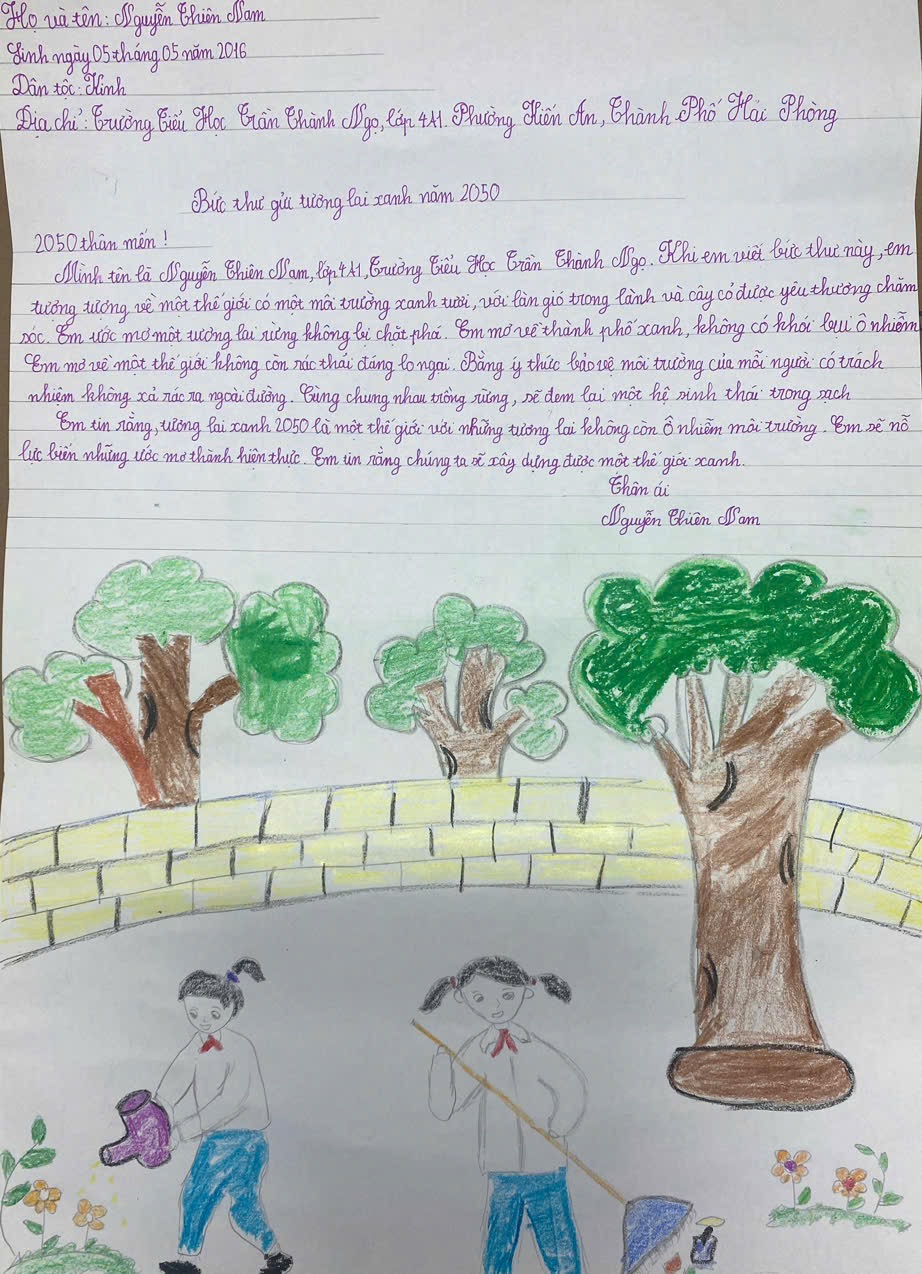 Họ và tên: Nguyễn Thiên Nam
Sinh ngày 05 tháng 05 năm 2016
Dân tộc: Kinh
Địa chỉ: Trường Tiểu Học Trần Thành Ngọ, lớp 4A1. Phường Kiến An, Thành Phố Hải Phòng
Bức thư gửi tương lai xanh năm 2050
2050 thân mến!
Mình tên là Nguyễn Thiên Nam, lớp 4A1, Trường Tiểu Học Trần Thành Ngọ. Khi em viết bức thư này, em
tưởng tượng về một thế giới có một môi trường xanh tươi, với làn gió trong lành và cây cỏ được yêu thương chăm
sóc. Em ước mơ một tương lai rừng không bị chặt phá. Em mơ về thành phố xanh, không có khói bụi ô nhiễm
Em mơ về một thế giới không còn rác thải đáng lo ngại. Bằng ý thức bảo vệ môi trường của mỗi người có trách
nhiệm không xả rác ra ngoài đường. Cùng chung nhau trồng rừng, sẽ đem lại một hệ sinh thái trong sạch
Em tin rằng, tương lai xanh 2050 là một thế giới với những tương lai không còn Ô nhiễm môi trường. Em sẽ nỗ
lực biến những ước mơ thành hiện thực. Em tin rằng chúng ta sẽ xây dựng được một thế giới xanh.
Thân ái
Nguyễn Thiên Nam